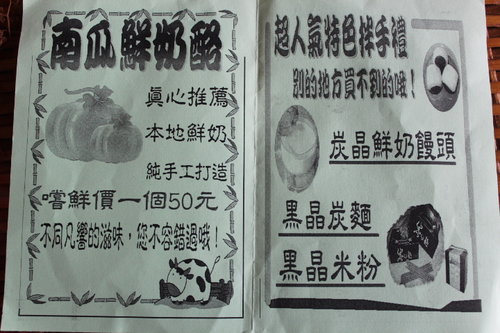 南瓜鮮奶酪
真心推薦
本地鮮奶
純手工打造
嚐鮮價一個50元
不同凡響的滋味，您不容錯過哦！
超人氣特色拌手禮
別的地方買不到的哦！
炭晶鮮奶饅頭
黑晶炭麵
黑晶米粉